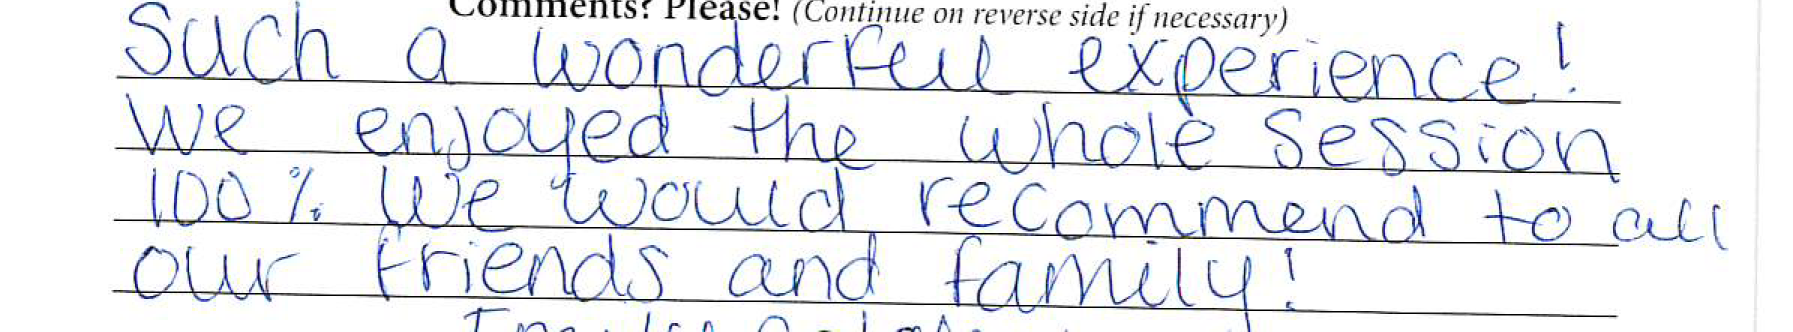 Comments? Please! (Continue on reverse side if necessary)
Such a wonderful experience!
We enjoyed the whole session
100% We would recommend to all
our friends and family!